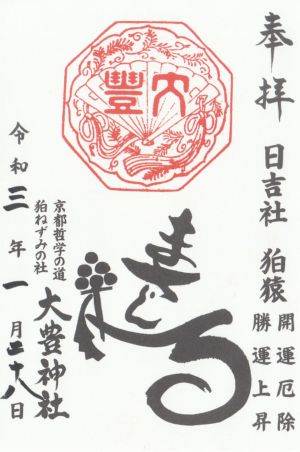 奉拝
日吉社 狛猿
開運厄除
勝運上昇
大豐
まさる
京都哲学の道
狛ねずみの社
大豊神社
令和三年一月二十八日